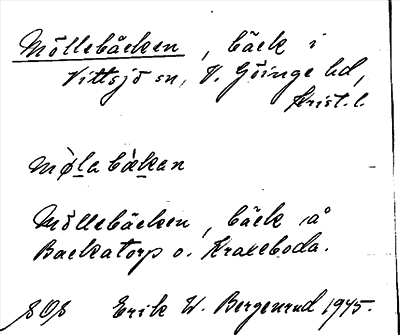 Möllebäcken, bäck i
Vittsjö sn, V. Göinge hd,
Krist. l.
mø̀la bækan
Möllebäcken, bäck å
Backatorp o. Kraxeboda.
SOS Erik W. Bergenrud 1945.